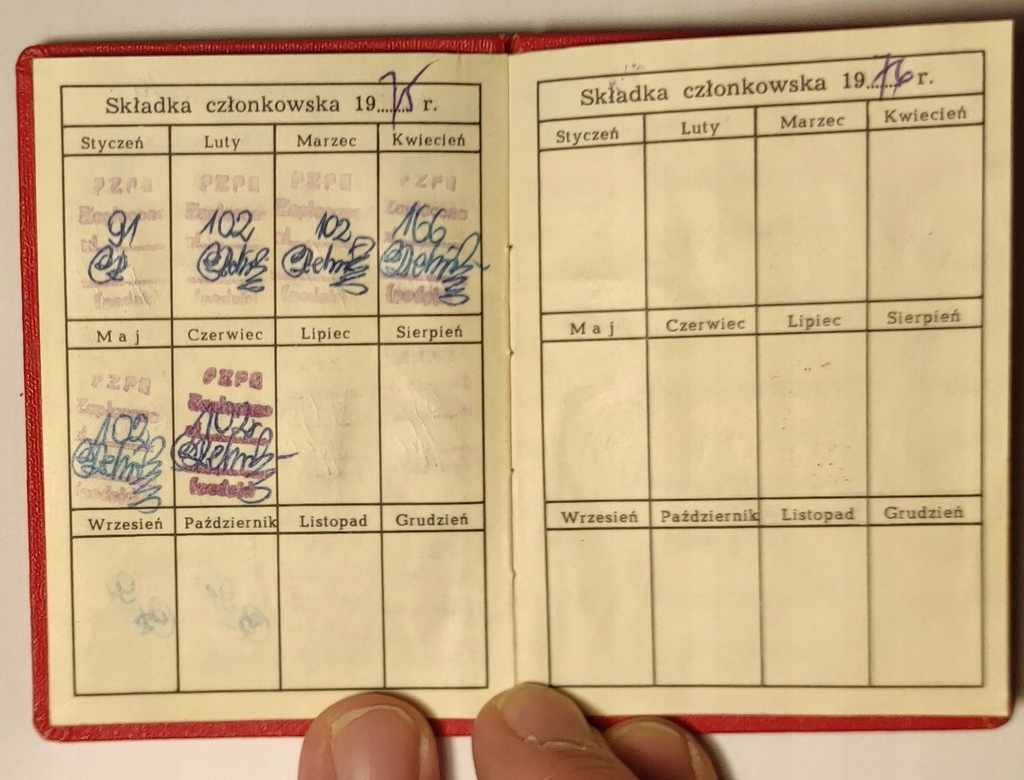 Składka członkowska 1975 r.
Styczeń Luty Marzec Kwiecień
PZPR PZPR PZPR PZPR
Zapłacono Zapłacono Zapłacono Zapłacono
91 102 102 166
zł
Maj Czerwiec Lipiec Sierpień
PZPR PZPR
Zapłacono Zapłacono
102 102
Wrzesień Październik Listopad Grudzień
Składka członkowska 1976 r.
Styczeń Luty Marzec Kwiecień
Maj Czerwiec Lipiec Sierpień
Wrzesień Październik Listopad Grudzień